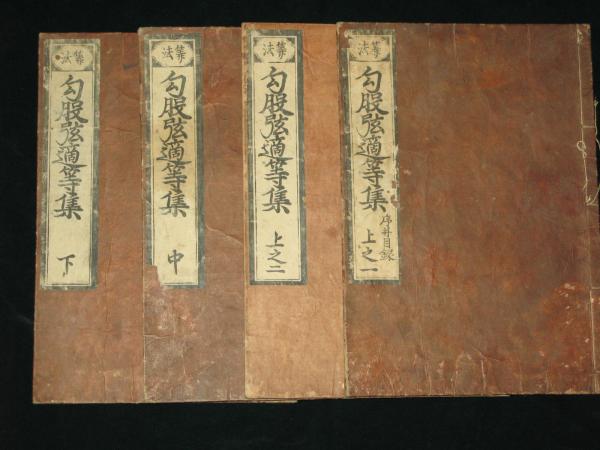 筭法
勾股弦適等集
序并目録
上之一
筭法
勾股弦適等集
上之二
筭法
勾股弦適等集
中
筭法
勾股弦適等集
下